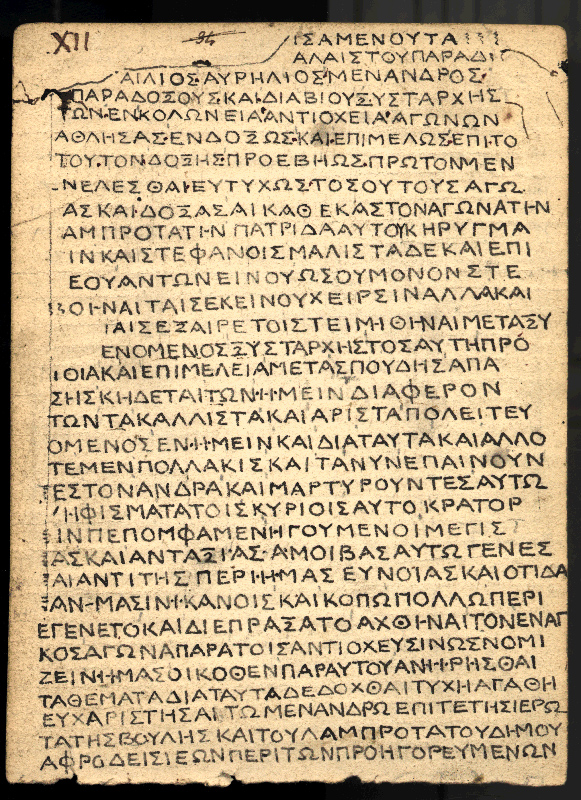 XII 94 ΙΣΑΜΕΝΟΥΤΑ
ΑΛΑΙΣΤΟΥΠΑΡΑΔΙ
ΑΙΛΙΟΣΑΥΡΗΛΙΟΣΜΕΝΑΝΔΡΟΣ
ΠΑΡΑΔΟΞΟΥΣΚΑΙΔΙΑΒΙΟΥΞΥΣΤΑΡΧΗΣ
ΤΩΝΕΝΚΟΛΩΝΕΙΑΑΝΤΙΟΧΕΙΑΑΓΩΝΩΝ
ΑΘΛΗΣΑΣΕΝΔΟΞΩΣΚΑΙΕΠΙΜΕΛΩΣΕΠΙΤΟ
ΤΟΥΤΟΝΔΟΞΗΣΠΡΟΕΒΗΩΣΠΡΩΤΟΝΜΕΝ
ΝΕΛΕΣΘΑΙΕΥΤΥΧΩΣΤΟΣΟΥΤΟΥΣΑΓΩ
ΑΣΚΑΙΔΟΞΑΣΑΙΚΑΘΕΚΑΣΤΟΝΑΓΩΝΑΤΗΝ
ΑΜΠΡΟΤΑΤΗΝΠΑΤΡΙΔΑΑΥΤΟΥΚΗΡΥΓΜΑ
ΙΝΚΑΙΣΤΕΦΑΝΟΙΣΜΑΛΙΣΤΑΔΕΚΑΙΕΠΙ
ΕΟΥΑΝΤΩΝΕΙΝΟΥΩΣΟΥΜΟΝΟΝΣΤΕ
ΘΟΙΝΑΙΤΑΙΣΕΚΕΙΝΟΥΧΕΙΡΣΙΝΑΛΛΑΚΑΙ
ΙΑΙΣΕΞΑΙΡΕΤΟΙΣΤΕΙΜΗΘΗΝΑΙΜΕΤΑΞΥ
ΕΝΟΜΕΝΟΣΞΥΣΤΑΡΧΗΣΤΟΣΑΥΤΗΠΡΟ
ΙΟΙΑΚΑΙΕΠΙΜΕΛΕΙΑΜΕΤΑΣΠΟΥΔΗΣΑΠΑ
ΣΗΣΚΗΔΕΤΑΙΤΩΝΗΜΕΙΝΔΙΑΦΕΡΟΝ
ΤΩΝΤΑΚΑΛΛΙΣΤΑΚΑΙΑΡΙΣΤΑΠΟΛΕΙΤΕΥ
ΟΜΕΝΟΣΕΝΗΜΕΙΝΚΑΙΔΙΑΤΑΥΤΑΚΑΙΑΛΛΟ
ΤΕΜΕΝΠΟΛΛΑΚΙΣΚΑΙΤΑΝΥΝΕΠΑΙΝΟΥΝ
ΤΕΣΤΟΝΑΝΔΡΑΚΑΙΜΑΡΤΥΡΟΥΝΤΕΣΑΥΤΩ
ΨΗΦΙΣΜΑΤΑΤΟΙΣΚΥΡΙΟΙΣΑΥΤΟΚΡΑΤΟΡ
ΣΙΝΠΕΠΟΜΦΑΜΕΝΗΓΟΥΜΕΝΟΙΜΕΓΙΣΤ
ΑΣΚΑΙΑΝΤΑΞΙΑΣΑΜΟΙΒΑΣΑΥΤΩΓΕΝΕΣ
ΘΑΙΑΝΤΙΤΗΣΠΕΡΙΗΜΑΣΕΥΝΟΙΑΣΚΑΙΟΤΙΔΑ
ΠΑΝΗΜΑΣΙΝΙΚΑΝΟΙΣΚΑΙΚΟΠΩΠΟΛΛΩΠΕΡΙ
ΕΓΕΝΕΤΟΚΑΙΔΙΕΠΡΑΞΑΤΟΑΧΘΗΝΑΙΤΟΝΕΝΑΓ
ΚΟΣΑΓΩΝΑΠΑΡΑΤΟΙΣΑΝΤΙΟΧΕΥΣΙΝΩΣΝΟΜΙ
ΖΕΙΝΗΜΑΣΟΙΚΟΘΕΝΠΑΡΑΥΤΟΥΑΝΗΡΗΣΘΑΙ
ΤΑΘΕΜΑΤΑΔΙΑΤΑΥΤΑΔΕΔΟΧΘΑΙΤΥΧΗΑΓΑΘΗ
ΕΥΧΑΡΙΣΤΗΣΑΙΤΩΜΕΝΑΝΔΡΩΕΠΙΤΕΤΗΣΙΕΡΩ
ΤΑΤΗΣΒΟΥΛΗΣΚΑΙΤΟΥΛΑΜΠΡΟΤΑΤΟΥΔΗΜΟΥ
ΑΦΡΟΔΕΙΣΙΕΩΝΠΕΡΙΤΩΝΠΡΟΗΓΟΡΕΥΜΕΝΩΝ